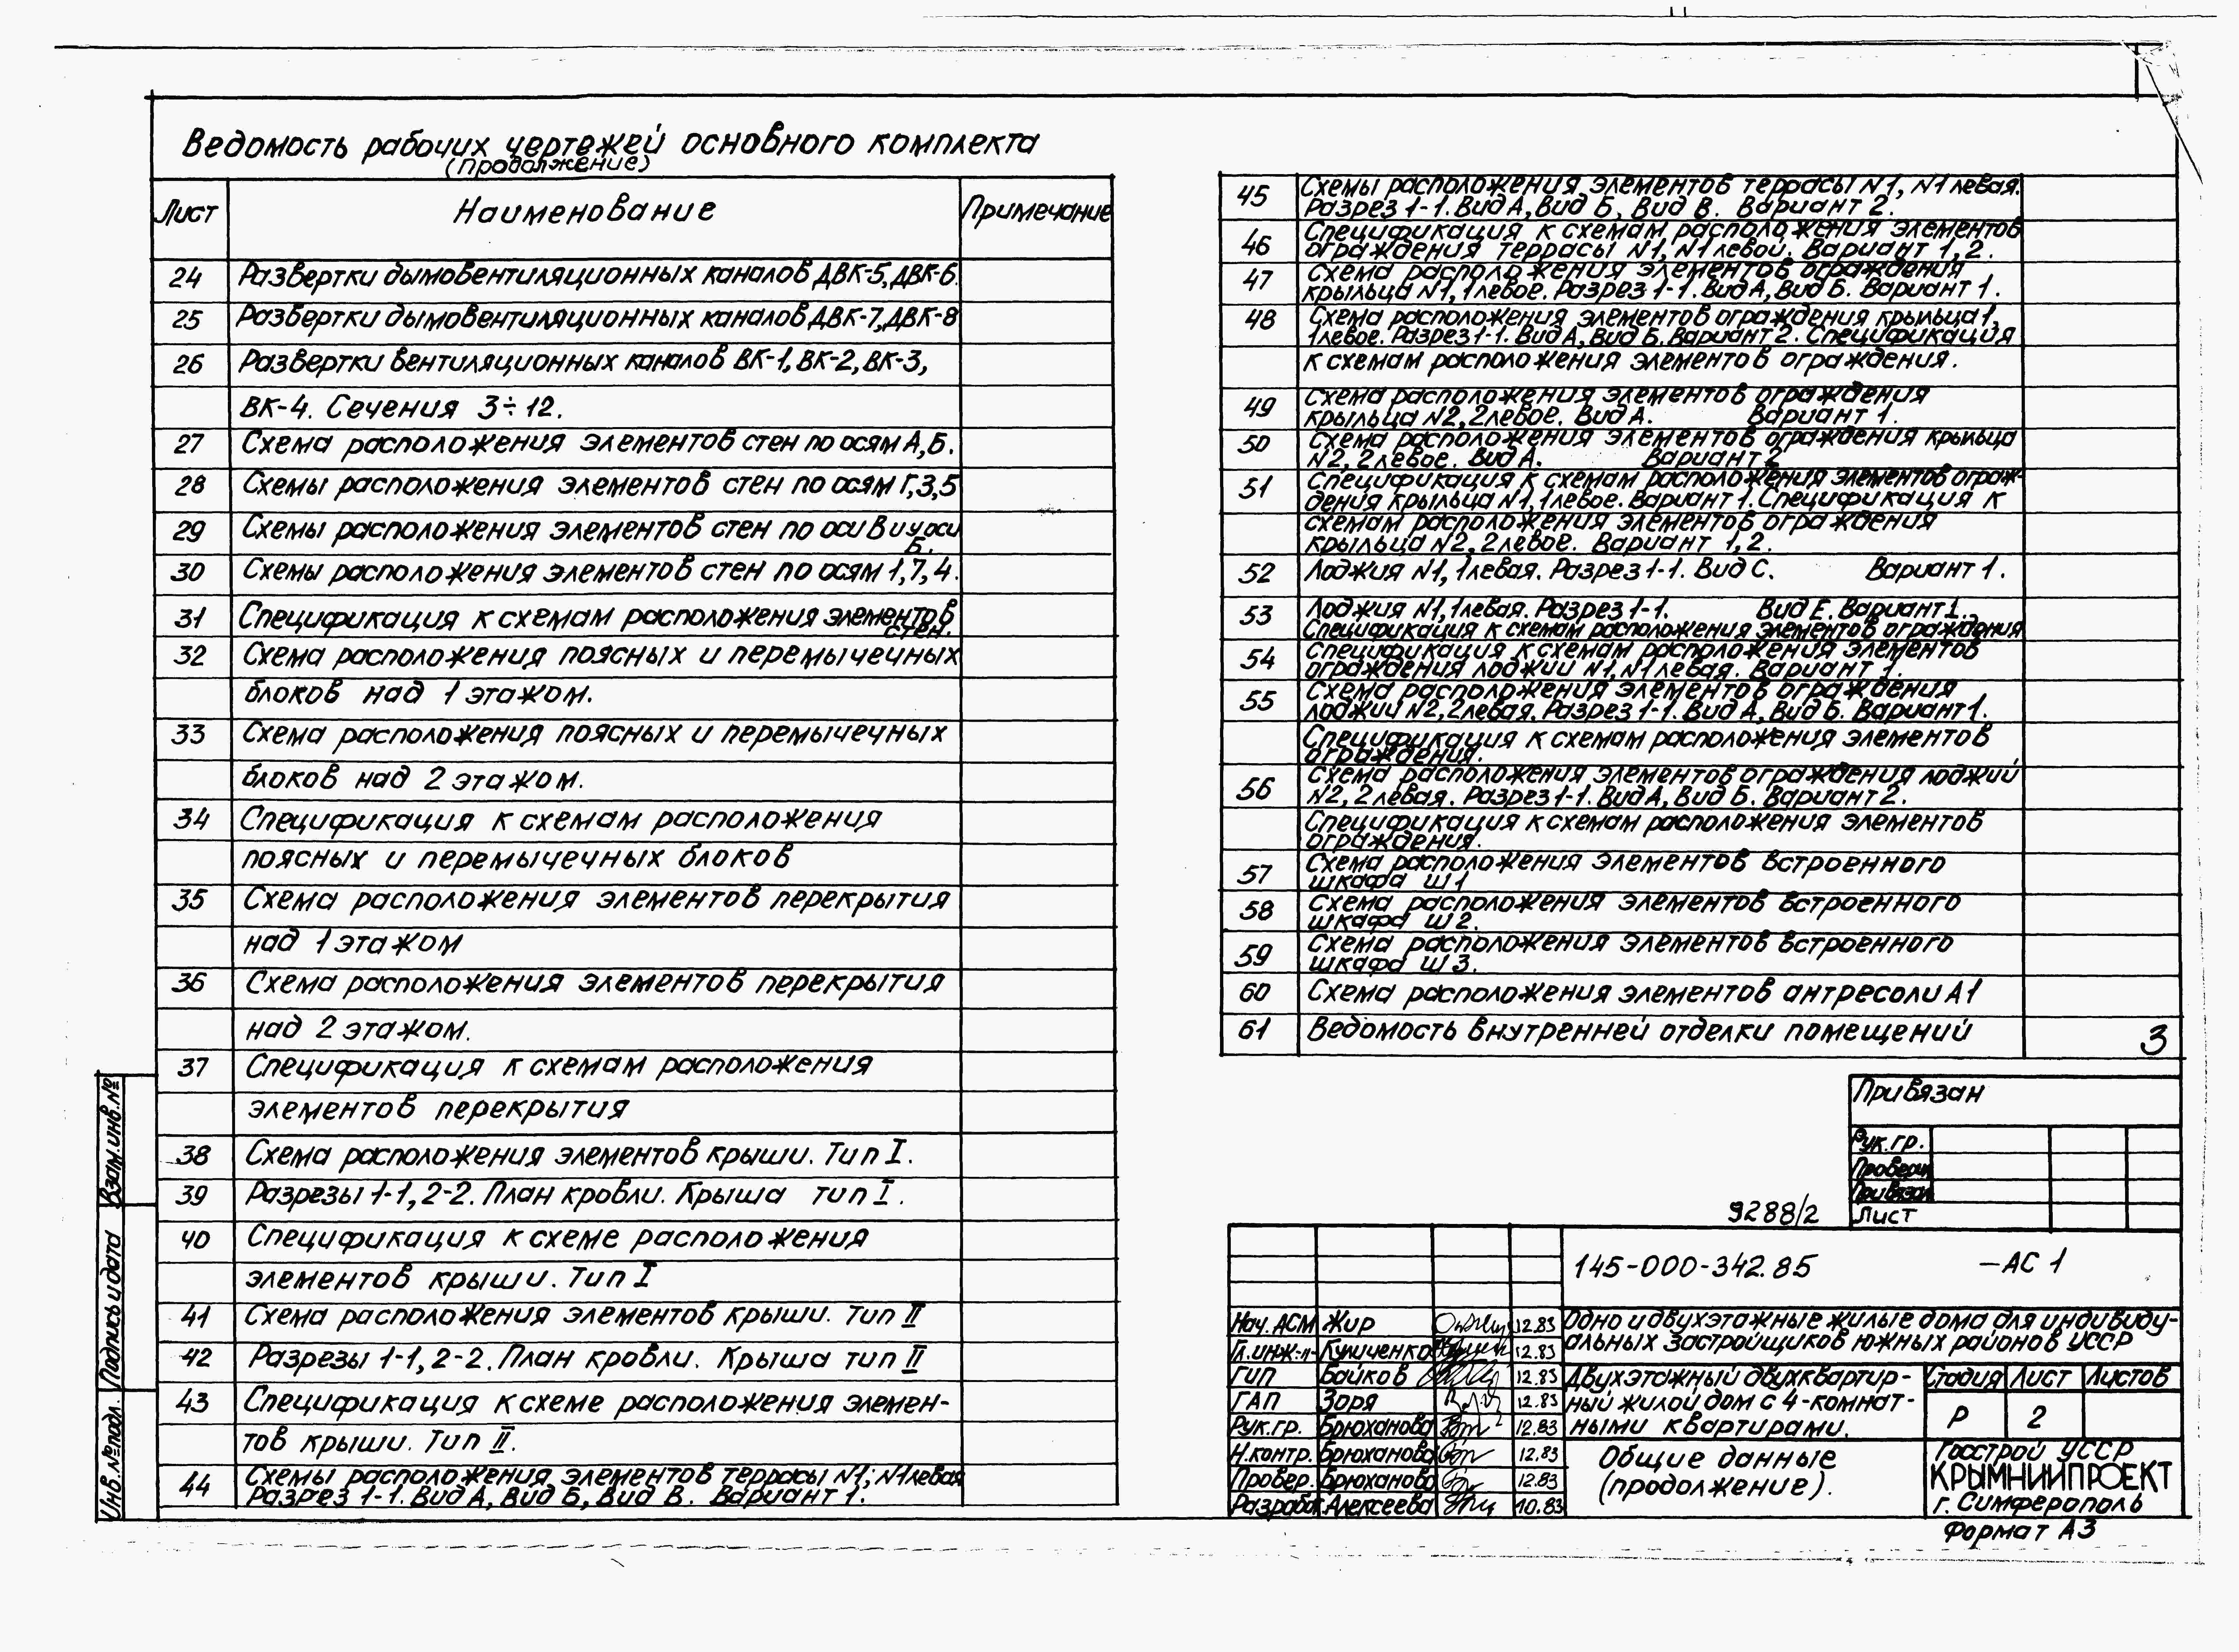 Ведомость рабочих чертежей основного комплекта
(продолжение)
Лист Наименование Примечание
24 Развертки дымовентиляционных каналов ДВК-5, ДВК-6.
25 Развертки дымовентиляционных каналов ДВК-7, ДВК-8
26 Развертки вентиляционных каналов ВК-1, ВК-2, ВК-3,
ВК-4. Сечения 3÷12.
27 Схема расположения элементов стен по осям А, Б.
28 Схемы расположения элементов стен по осям Г, 3, 5
29 Схемы расположения элементов стен по оси В и у оси
Б.
30 Схемы расположения элементов стен по осям 1, 7, 4.
31 Спецификация к схемам расположения элементов
стен.
32 Схема расположения поясных и перемычечных
блоков над 1 этажом.
33 Схема расположения поясных и перемычечных
блоков над 2 этажом.
34 Спецификация к схемам расположения
поясных и перемычечных блоков
35 Схема расположения элементов перекрытия
над 1 этажом
36 Схема расположения элементов перекрытия
над 2 этажом.
37 Спецификация к схемам расположения
элементов перекрытия
38 Схема расположения элементов крыши. Тип I.
39 Разрезы 1-1, 2-2. План кровли. Крыша тип I.
40 Спецификация к схеме расположения
элементов крыши. Тип I
41 Схема расположения элементов крыши. Тип II
42 Разрезы 1-1, 2-2. План кровли. Крыша тип II
43 Спецификация к схеме расположения элемен-
тов крыши. Тип II.
44 Схемы расположения элементов террасы N1; N1 левая
Разрез 1-1. Вид А, Вид Б, Вид В. Вариант 1.
45 Схемы расположения элементов террасы N1, N1 левая.
Разрез 1-1. Вид А, Вид Б, Вид В. Вариант 2.
46 Спецификация к схемам расположения элементов
ограждения террасы N1, N1 левой. Вариант 1, 2.
47 Схема расположения элементов ограждения
крыльца N1, 1 левое. Разрез 1-1. Вид А, Вид Б. Вариант 1.
48 Схема расположения элементов ограждения крыльца 1,
1 левое. Разрез 1-1. Вид А, Вид Б. Вариант 2. Спецификация
к схемам расположения элементов ограждения.
49 Схема расположения элементов ограждения
крыльца N2, 2 левое. Вид А. Вариант 1.
50 Схема расположения элементов ограждения крыльца
N2, 2 левое. Вид А. Вариант 2
51 Спецификация к схемам расположения элементов ограж-
дения крыльца N1, 1 левое. Вариант 1. Спецификация к
схемам расположения элементов ограждения
крыльца N2, 2 левое. Вариант 1, 2.
52 Лоджия N1, 1 левая. Разрез 1-1. Вид С. Вариант 1.
53 Лоджия N1, 1 левая. Разрез 1-1. Вид Е. Вариант 1.
Спецификация к схемам расположения элементов ограждения
54 Спецификация к схемам расположения элементов
ограждения лоджии N1, N1 левая. Вариант 1.
55 Схема расположения элементов ограждения
лоджии N2, 2 левая. Разрез 1-1. Вид А, Вид Б. Вариант 1.
Спецификация к схемам расположения элементов
ограждения.
56 Схема расположения элементов ограждения лоджий
N2, 2 левая. Разрез 1-1. Вид А, Вид Б. Вариант 2.
Спецификация к схемам расположения элементов
ограждения.
57 Схема расположения элементов встроенного
шкафа Ш1
58 Схема расположения элементов встроенного
шкафа Ш2.
59 Схема расположения элементов встроенного
шкафа Ш3.
60 Схема расположения элементов антресоли А1
61 Ведомость внутренней отделки помещений 3
Привязан
Рук.гр.
Проверил
Привязал
Лист
9288/2
145-000-342.85 -АС 1
Нач. АСМ Жир 12.83
Гл.инж.п- Куниченко 12.83
ГИП Байков 12.83
ГАП Зоря 12.83
Рук.гр. Брюханова 12.83
Н.контр. Брюханова 12.83
Провер. Брюханова 12.83
Разраб Алексеева 10.83
Одно и двухэтажные жилые дома для индивиду-
альных застройщиков южных районов УССР
Двухэтажный двухквартир-
ный жилой дом с 4-комнат-
ными квартирами.
Стадия Лист Листов
Р 2
Общие данные
(продолжение).
Госстрой УССР
КРЫМНИИПРОЕКТ
г. Симферополь
Формат А3
Взам.инв.№
Подпись и дата
Инв.№подл.